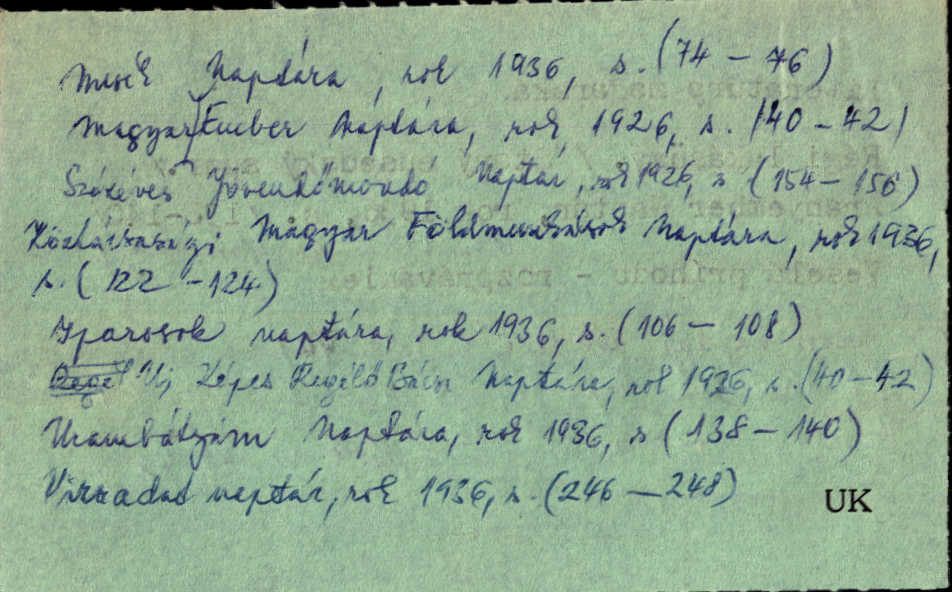 Naptára, rok 1936, s. (74 – 76)
Magyar Ember Naptára, rok 1926, s. (40 – 42)
Százéves Jövendőmondó Naptár, rok 1926, s (154 – 156)
Köztársasági Magyar Földmunkások Naptára, rok 1936,
s. (122 – 124)
Iparosok naptára, rok 1936, s. (106 – 108)
Uj Képes Regélő Bácsi Naptára, rok 1926, s. (40 – 42)
Urambátyám Naptára, rok 1936, s (138 – 140)
Virradat naptár, rok 1936, s. (246 – 248)
UK